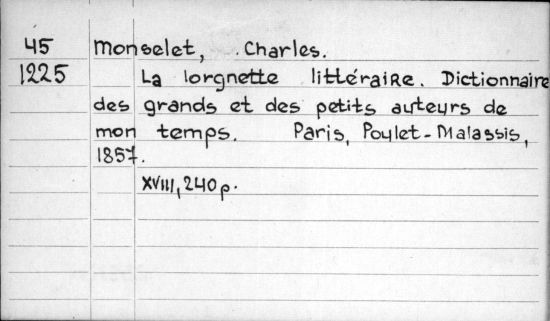 45 Monselet, Charles.
1225 La lorgnette littéraire. Dictionnaire
des grands et des petits auteurs de
mon temps. Paris, Poulet-Malassis,
1857.
XVIII, 240 p.